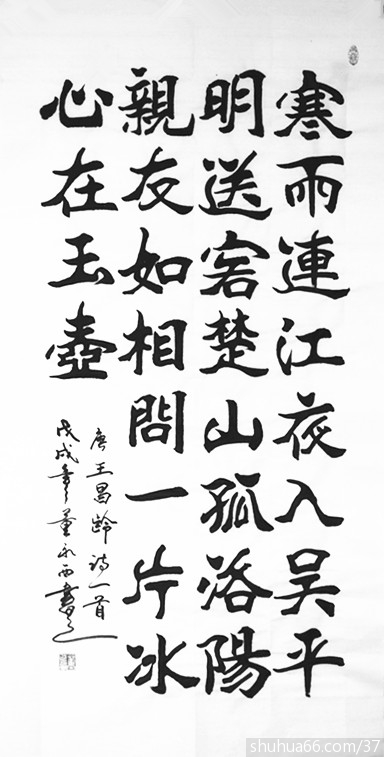 寒雨連江夜入吴平
明送客楚山孤洛陽
親友如相問一片冰
心在玉壺
唐王昌齡詩一首
戊戌年董永西書
shuhua66.com/37